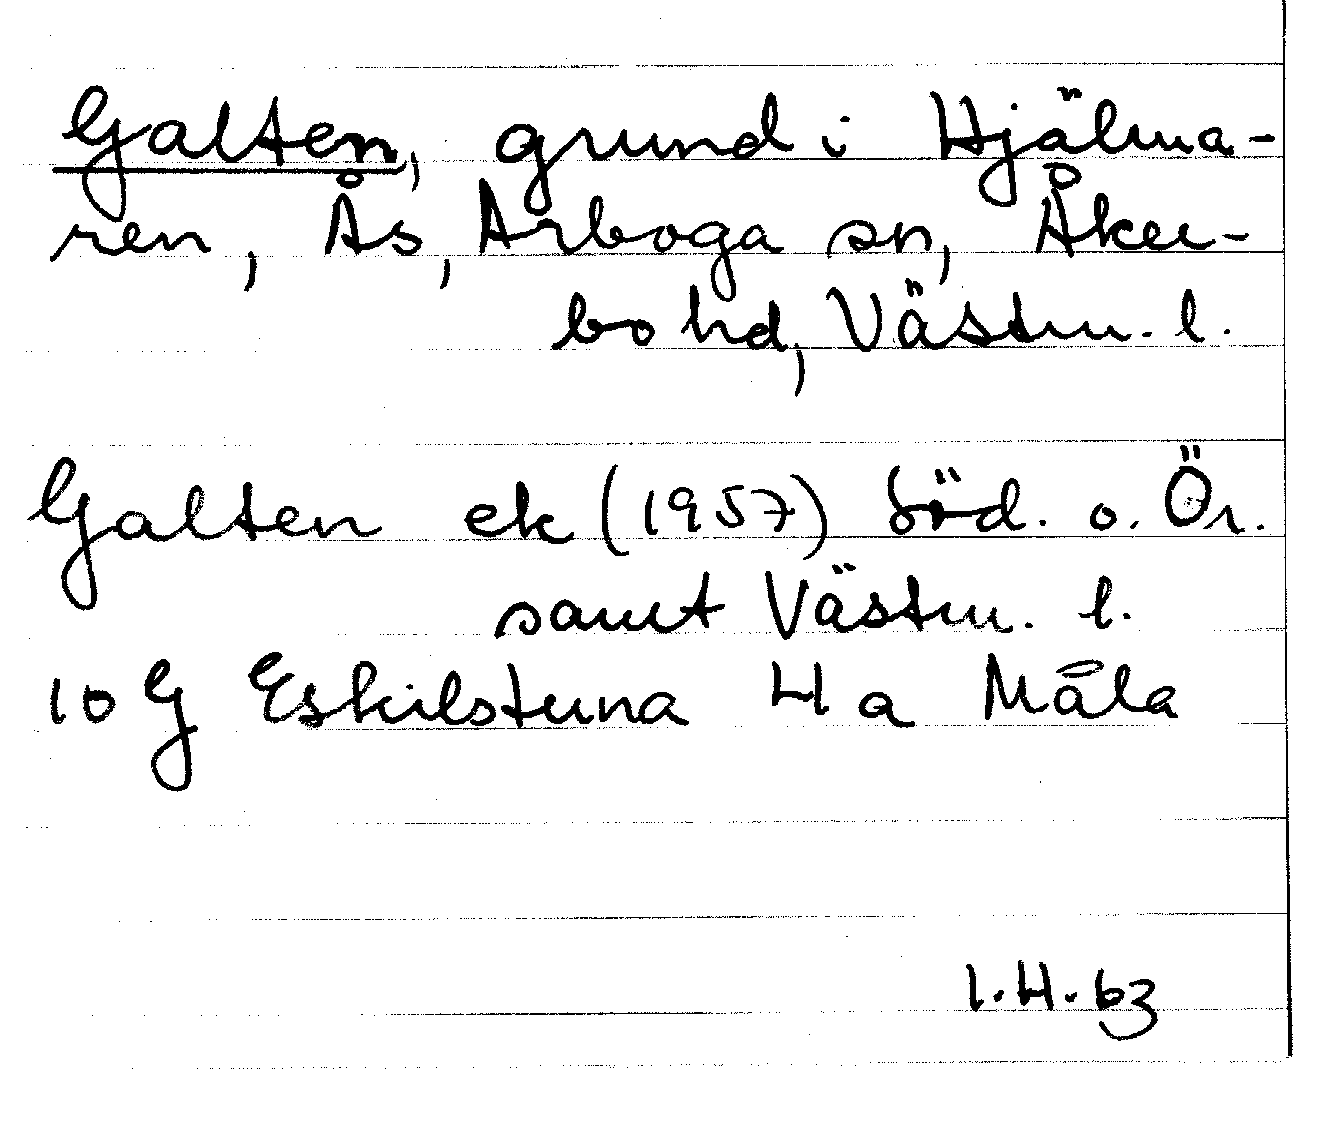 Galten, grund i Hjälma-
ren, Ås, Arboga sn, Åker-
bo hd, Västm. l.
Galten ek (1957) Söd. o. Ör.
samt Västm. l.
10 G Eskilstuna 4 a Måla
I.H. 63